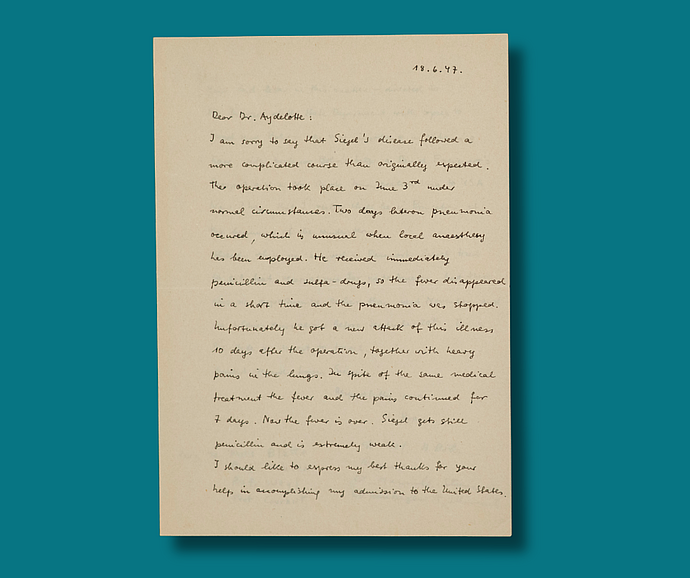 18.6.47.
Dear Dr. Aydelotte:
I am sorry to say that Siegel's disease followed a
more complicated course than originally expected.
The operation took place on June 3rd under
normal circumstances. Two days lateron pneumonia
occured, which is unusual when local anaesthesy
has been employed. He received immediately
penicillin and sulfa-drugs, so the fever disappeared
in a short time and the pneumonia was stopped.
Unfortunately he got a new attack of this illness
10 days after the operation, together with heavy
pains in the lungs. In spite of the same medical
treatment the fever and the pains continued for
7 days. Now the fever is over. Siegel gets still
penicillin and is extremely weak.
I should like to express my best thanks for your
help in accomplishing my admission to the United States.